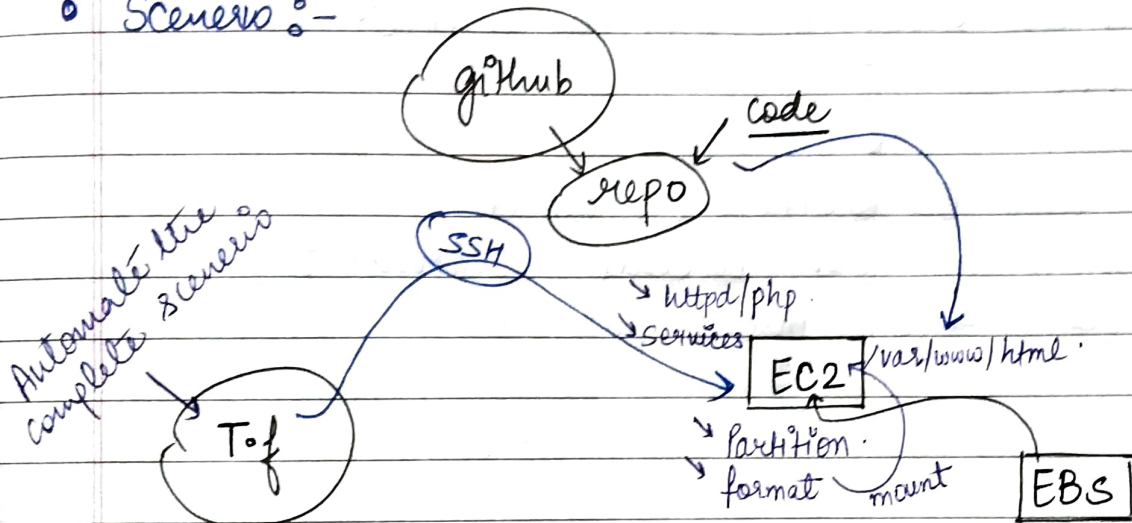 • Scenerio :-
github
code
repo
SSH
Automate the
complete scenerio
httpd/php.
services
EC2
/var/www/html.
T.f
Partition.
format
mount
EBS